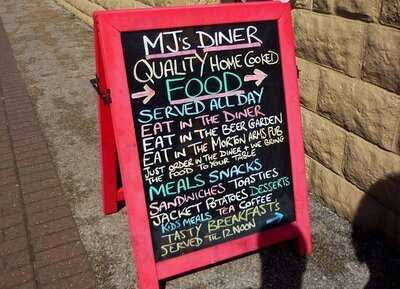 MJ's DINER
QUALITY HOME COOKED
FOOD
SERVED ALL DAY
EAT IN THE DINER
EAT IN THE BEER GARDEN
EAT IN THE MORTON ARMS PUB
JUST ORDER IN THE DINER & WE BRING
THE FOOD TO YOUR TABLE
MEALS SNACKS
SANDWICHES TOASTIES
JACKET POTATOES DESSERTS
KIDS MEALS TEA COFFEE
TASTY BREAKFASTS
SERVED TIL 12 NOON